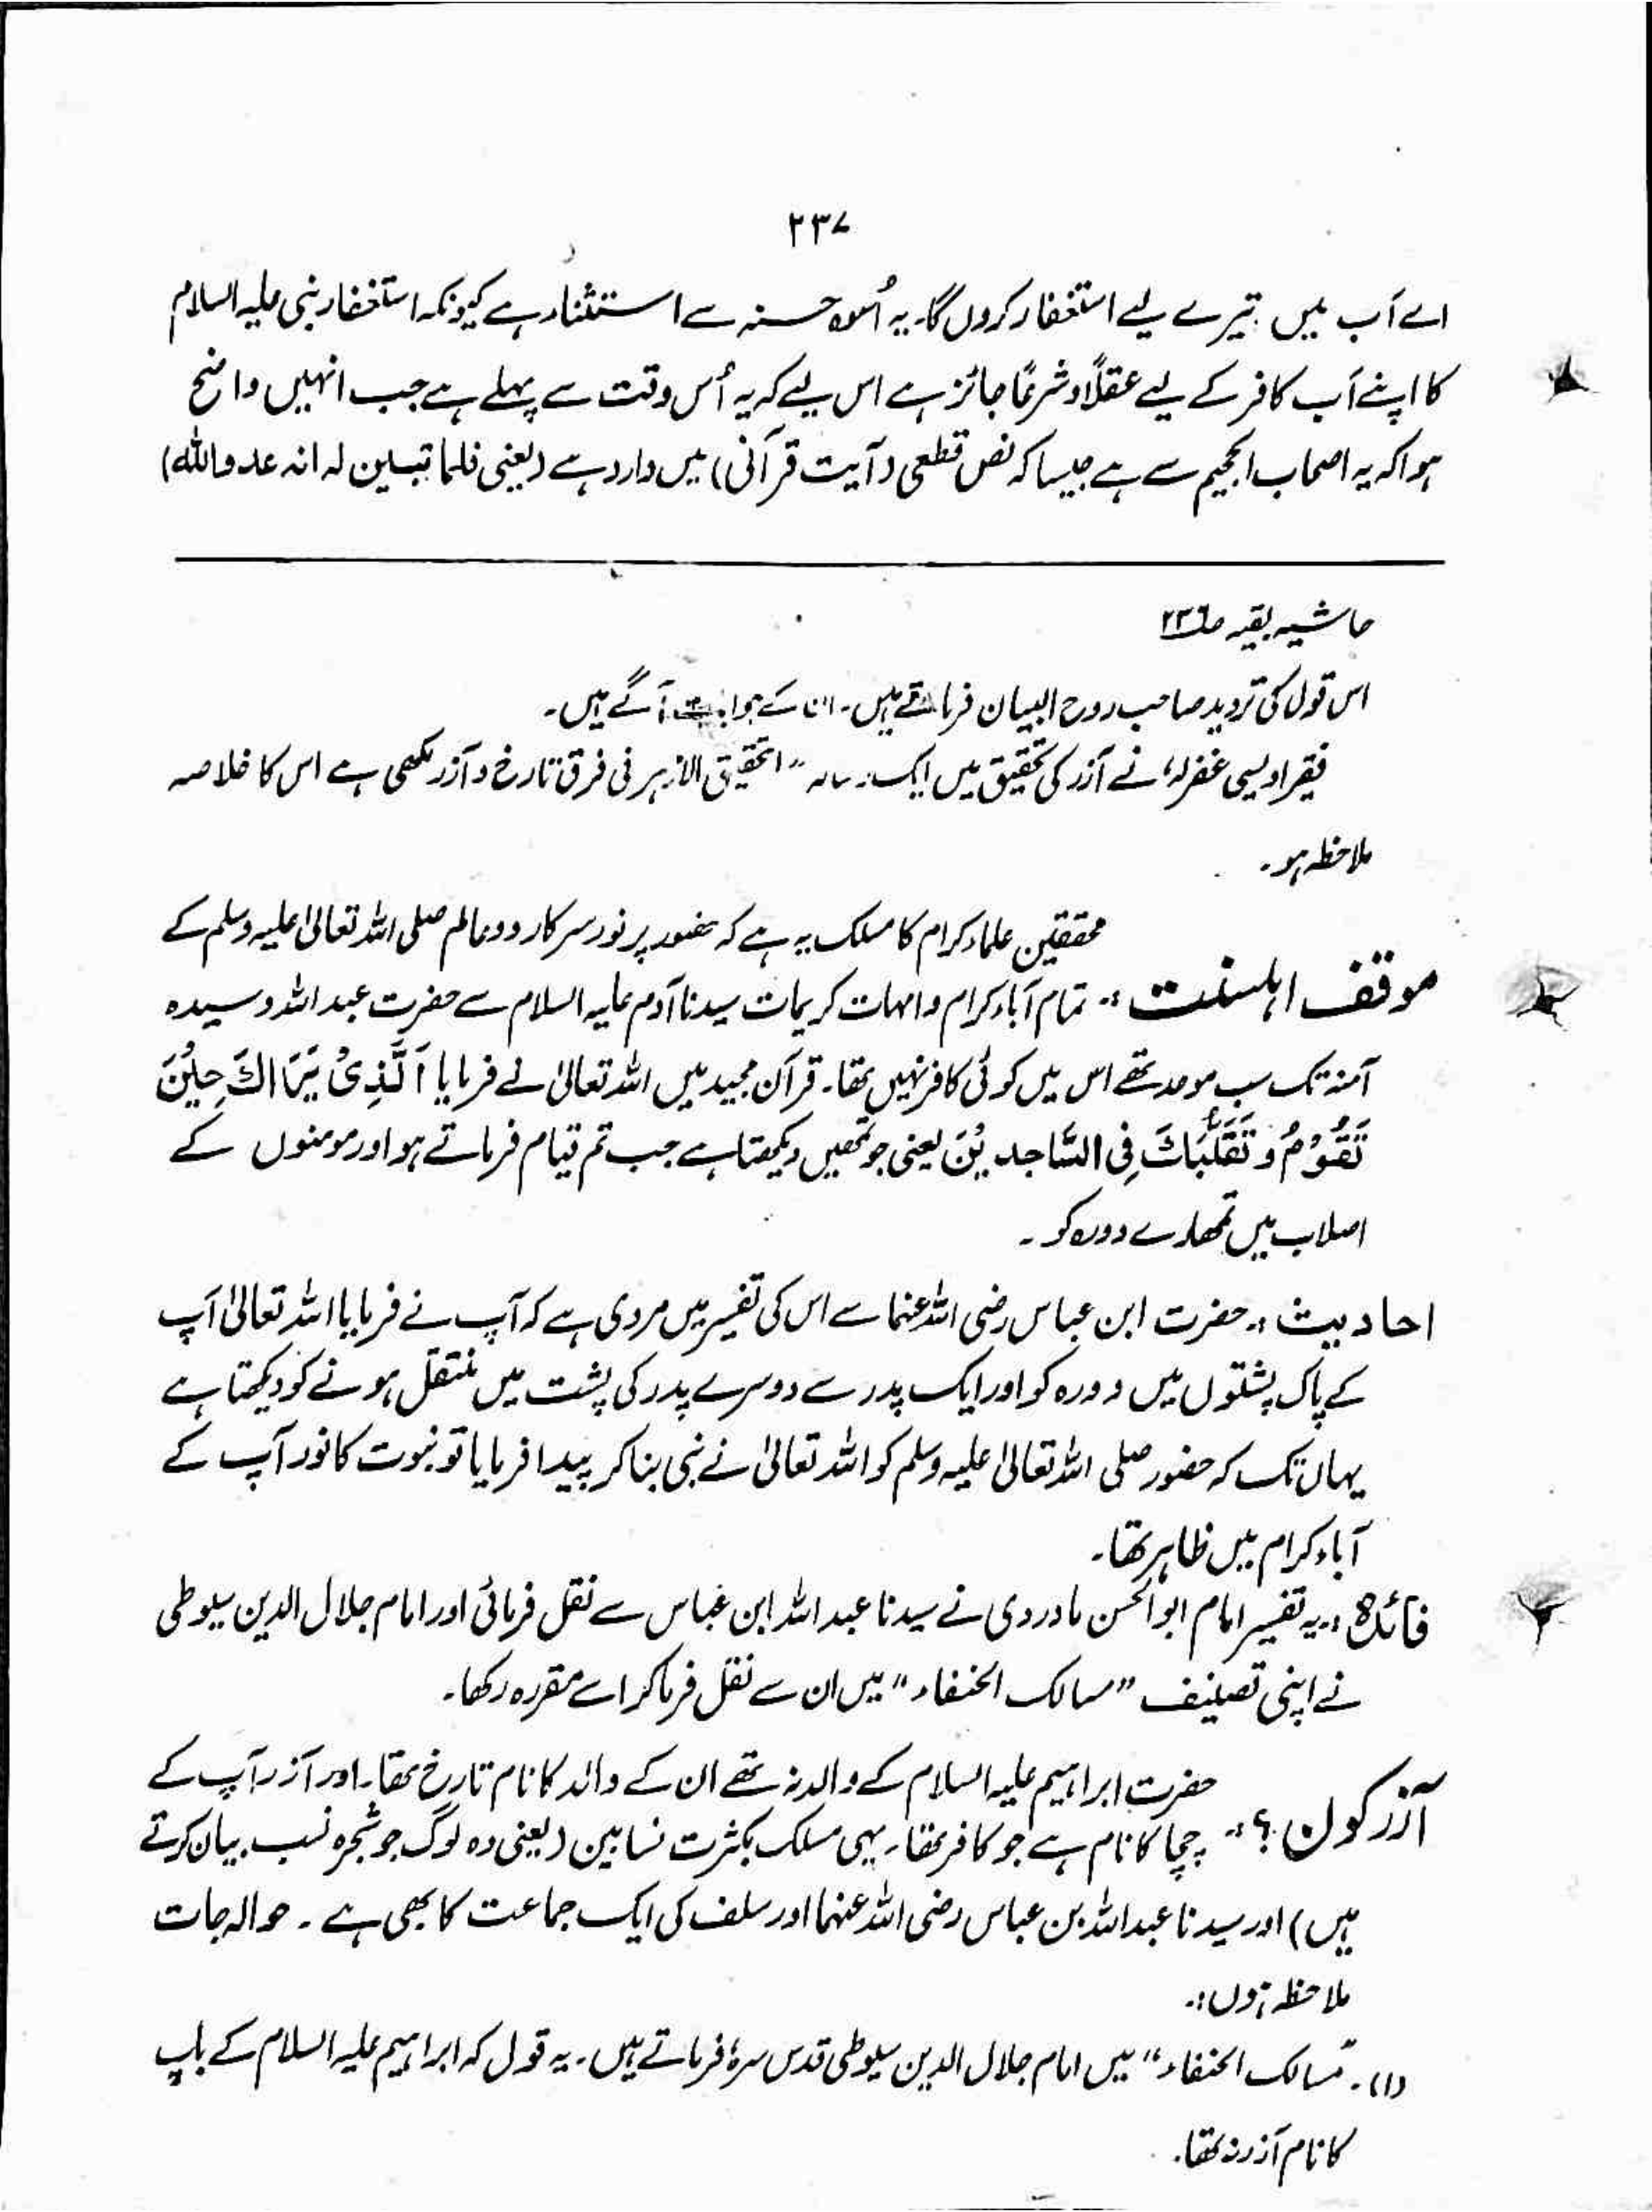 ۲۳۷
اے اَب میں تیرے لیے استغفار کروں گا۔ یہ اُسوہ حسنہ سے استثناء ہے کیونکہ استغفار نبی علیہ السلام
کا اپنے اَب کافر کے لیے عقلاً و شرعًا جائز ہے اس لیے کہ یہ اُس وقت سے پہلے ہے جب انہیں واضح
ہوا کہ یہ اصحاب الجحیم سے ہے جیسا کہ نص قطعی (آیت قرآنی) میں وارد ہے (یعنی فلما تبین لہ انہ عدو اللہ)
حاشیہ بقیہ ص۲۳۶
اس قول کی تردید صاحب روح البیان فرماتے ہیں۔ ان کے جوابات آگے ہیں۔
فقیر اویسی غفرلہٗ نے آزر کی تحقیق میں ایک رسالہ "التحقیق الازہر فی فرق تارخ و آزر لکھی ہے اس کا خلاصہ
ملاحظہ ہو۔
محققین علماء کرام کا مسلک یہ ہے کہ حضور پر نور سرکار دو عالم صلی اللہ تعالیٰ علیہ وسلم کے
موقف اہلسنت :۔ تمام آباء کرام و امہات کریمات سیدنا آدم علیہ السلام سے حضرت عبداللہ و سیدہ
آمنہ تک سب موحد تھے اس میں کوئی کافر نہیں تھا۔ قرآن مجید میں اللہ تعالیٰ نے فرمایا اَلَّذِیْ یَرَاکَ حِیْنَ
تَقُوْمُ وَ تَقَلُّبَکَ فِی السَّاجِدِیْنَ یعنی جو تمھیں دیکھتا ہے جب تم قیام فرماتے ہو اور مومنوں کے
اصلاب میں تمھارے دورہ کو ۔
احادیث :۔ حضرت ابن عباس رضی اللہ عنہما سے اس کی تفسیر میں مروی ہے کہ آپ نے فرمایا اللہ تعالیٰ آپ
کے پاک پشتوں میں دورہ کو اور ایک پدر سے دوسرے پدر کی پشت میں منتقل ہونے کو دیکھتا ہے
یہاں تک کہ حضور صلی اللہ تعالیٰ علیہ وسلم کو اللہ تعالیٰ نے نبی بنا کر پیدا فرمایا تو نبوت کا نور آپ کے
آباء کرام میں ظاہر تھا۔
فائدہ :۔ یہ تفسیر امام ابوالحسن ماوردی نے سیدنا عبداللہ ابن عباس سے نقل فرمائی اور امام جلال الدین سیوطی
نے اپنی تصنیف "مسالک الحنفاء" میں ان سے نقل فرما کر اسے مقررہ رکھا۔
حضرت ابراہیم علیہ السلام کے والد نہ تھے ان کے والد کا نام تارخ تھا۔ اور آزر آپ کے
آزر کون ؟ :۔ چچا کا نام ہے جو کافر تھا۔ یہی مسلک بکثرت نسابین (یعنی وہ لوگ جو شجرہ نسب بیان کرتے
ہیں) اور سیدنا عبداللہ بن عباس رضی اللہ عنہما اور سلف کی ایک جماعت کا بھی ہے ۔ حوالہ جات
ملاحظہ ہوں:۔
(۱)۔ "مسالک الحنفاء" میں امام جلال الدین سیوطی قدس سرہٗ فرماتے ہیں۔ یہ قول کہ ابراہیم علیہ السلام کے باپ
کا نام آذر نہ تھا۔